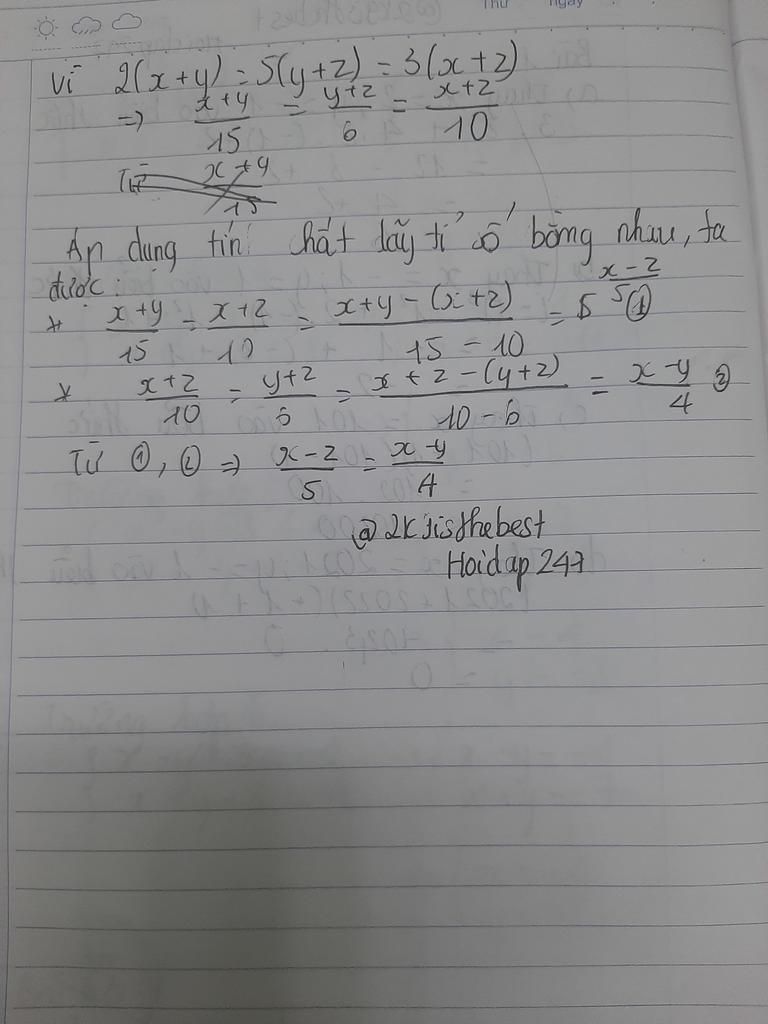 Thứ Ngày
Vì 2(x+y) = 5(y+z) = 3(x+z)
=> x+y/15 = y+z/6 = x+z/10
Từ x+y/15
Áp dụng tín chất dãy tỉ số bằng nhau, ta
được:
* x+y/15 = x+z/10 = x+y-(x+z)/15-10 = x-z/5 ①
* x+z/10 = y+z/6 = x+z-(y+z)/10-6 = x-y/4 ②
Từ ①, ② => x-z/5 = x-y/4
@2kjisthebest
Hoidap247